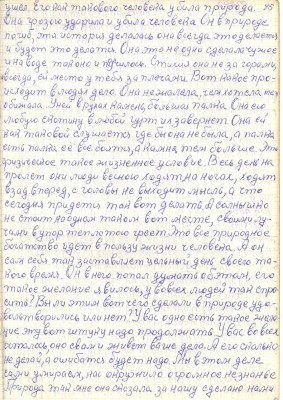 ушел. Его как такового человека убила природа. 75
Она грозою ударила и убила человека. Он в природе
погиб, эта история делалась она всегда это делает
и будет это делать. Она это не одно сделала чужое
и на воде таково и пришлось. Стихия она не за горами,
всегда, ей место у тебя за плечами. Вот какое про-
исходит в людях дело. Она не жалела, чем хотела так
обижала. У ней в руках камень, большая палка. Она его
любую скотину в любой гурт их завернет. Она ей
как таковой слушается где бы она не была, а палка
есть палка ее все боятся, а камня тем больше. Это
физическое такое жизненное условие. Весь день на
пролет они люди весною ходят на ногах, ходят
взад вперед, с головы не выходит мысль, а что
сегодня придется так вот делать. А солнышко
не стоит на одном таком вот месте, своими лу-
чами в упор теплотою греет. Это все природное
богатство идет в пользу жизни человека. А он
сам себя так заставляет целый день своего та-
кого время. Он в него попал думать об этом, его
такое желание явилось, у во всех людей так спро-
сить? Вы ли этим вот чего сделали в природе удо-
влетворились или нет? У вас одно есть такое жела-
ние эту вот штуку надо продолжать. У вас во всех
осталось, оно с вами живет ваше дело. А его сколько
не делай, а ошибаться будет надо. Мы в этом деле
сами умираем, нас окружило огромное незнанье.
Природа так мне она сказала за нашу сделано нами